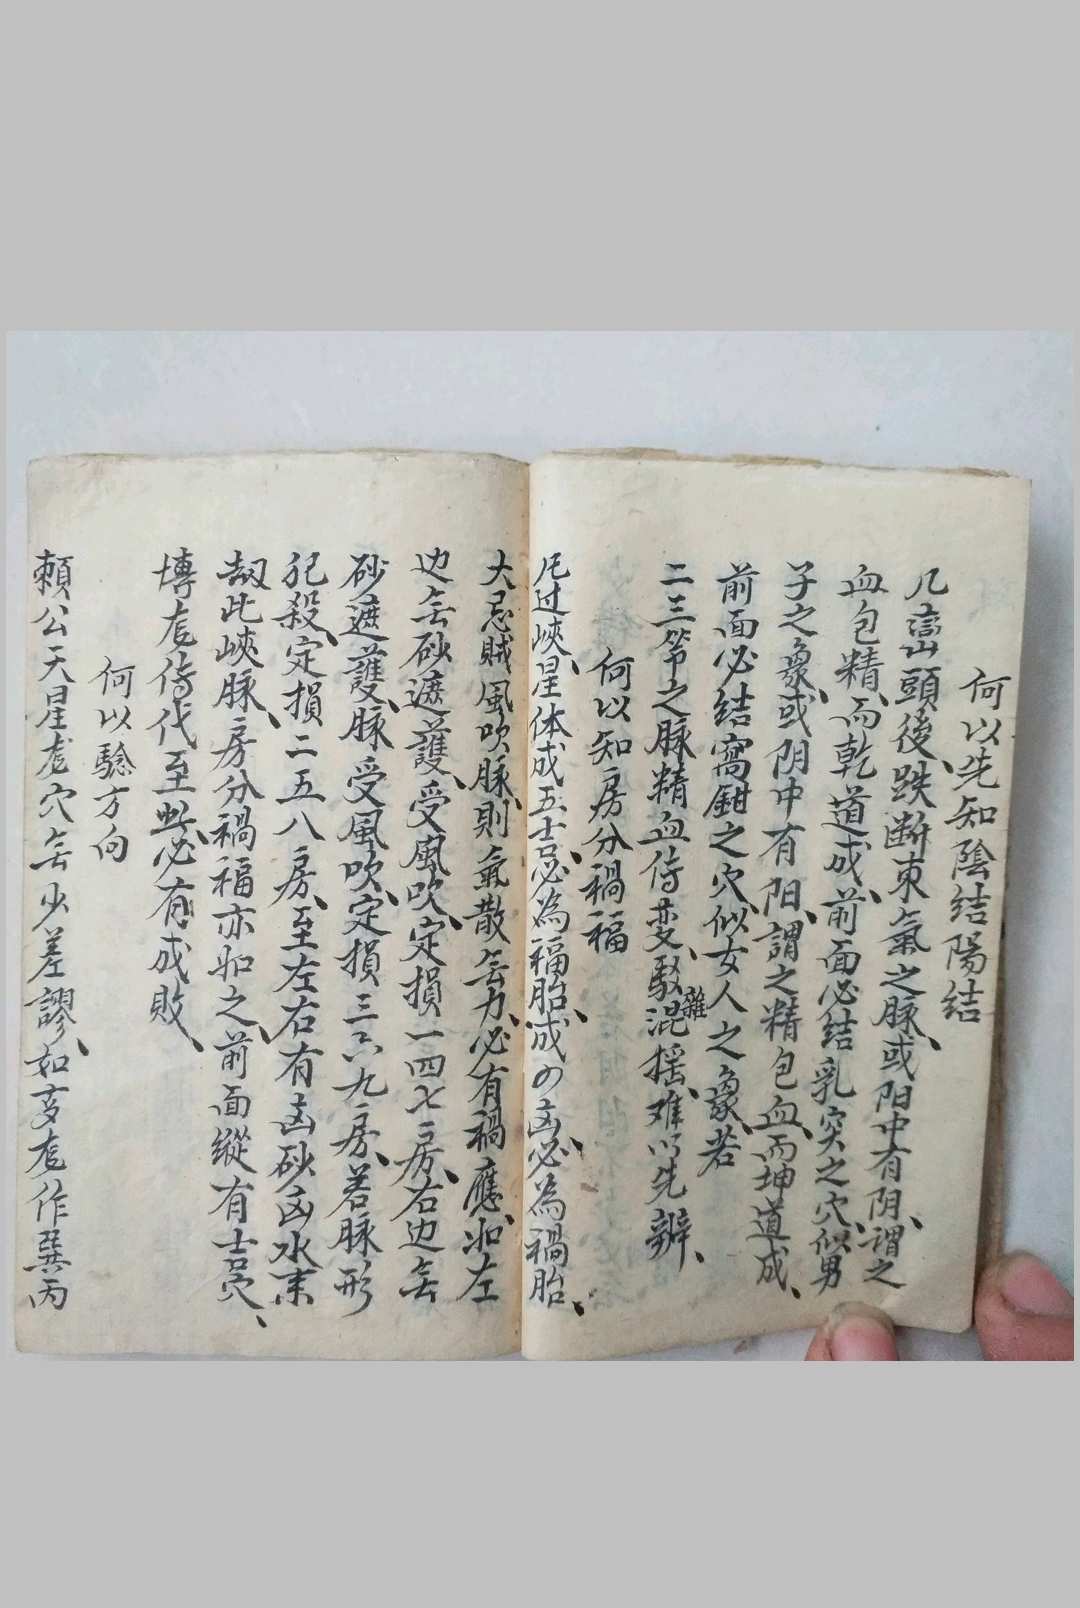 何以先知陰結陽結
凡巒頭後跌斷束氣之脉、或阳中有阴、謂之
血包精、而乾道成、前面必结乳突之穴、似男
子之象、或阴中有阳、謂之精包血、而坤道成、
前面必结窩鉗之穴、似女人之象、若
二三節之脉精血侍变、駁雜混摇、难以先辨、
何以知房分禍福
凡过峽、星体成五吉、必為福胎、成四凶、必為禍胎、
大忌賊風吹脉、則氣散無力、必有禍應、如左
边無砂遮護、受風吹、定損一四七房、右边無
砂遮護、脉受風吹、定損三六九房、若脉形
犯殺、定損二五八房、至左右有凶砂凶水来
刼此峽脉、房分禍福亦如之、前面縱有吉穴、
塟后侍代至此、必有成敗、
何以騐方向
賴公天星龙穴無少差謬、如亥龙作巽丙